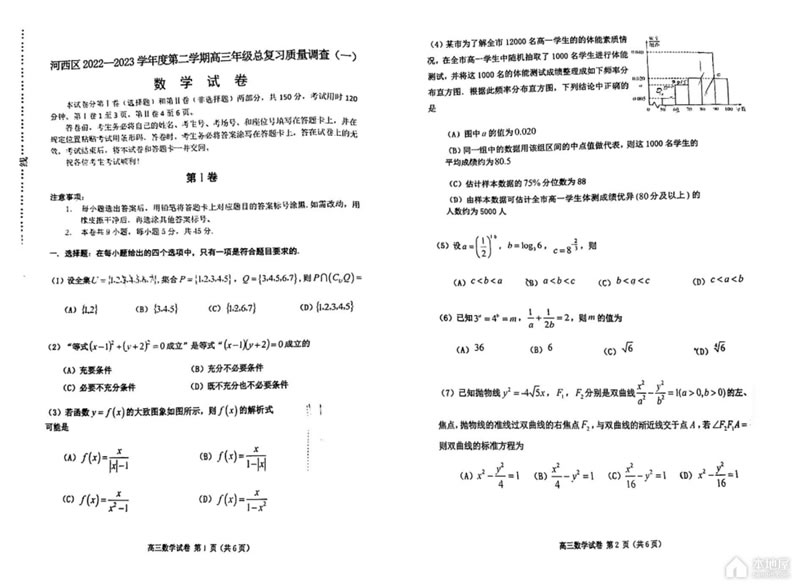 河西区 2022—2023 学年度第二学期高三年级总复习质量调查（一）
数 学 试 卷
本试卷分第 I 卷（选择题）和第 II 卷（非选择题）两部分，共 150 分，考试用时 120
分钟。第 I 卷 1 至 3 页，第 II 卷 4 至 6 页。
答卷前，考生务必将自己的姓名、考生号、考场号、和座位号填写在答题卡上，并在
规定位置粘贴考试用条形码。答卷时，考生务必将答案涂写在答题卡上，答在试卷上的无
效。考试结束后，将本试卷和答题卡一并交回。
祝各位考生考试顺利！
线
第 I 卷
注意事项：
1. 每小题选出答案后，用铅笔将答题卡上对应题目的答案标号涂黑.如需改动，用
橡皮擦干净后，再选涂其他答案标号。
2. 本卷共 9 小题，每小题 5 分，共 45 分.
一. 选择题：在每小题给出的四个选项中，只有一项是符合题目要求的.
（1）设全集U = {1,2,3,4,5,6,7}, 集合 P = {1,2,3,4,5} , Q = {3,4,5,6,7}, 则 P∩(C_U Q) =
(A) {1,2} (B) {3,4,5} (C) {1,2,6,7} (D) {1,2,3,4,5}
（2）“等式(x−1)²+(y+2)²=0成立”是等式“(x−1)(y+2)=0成立的
(A) 充要条件 (B) 充分不必要条件
(C) 必要不充分条件 (D) 既不充分也不必要条件
（3）若函数 y=f(x)的大致图象如图所示，则 f(x)的解析式
可能是
(A) f(x)=x/(|x|−1) (B) f(x)=x/(1−|x|)
(C) f(x)=x/(x²−1) (D) f(x)=x/(1−x²)
高三数学试卷 第 1 页（共 6 页）
（4）某市为了解全市 12000 名高一学生的的体能素质情
况，在全市高一学生中随机抽取了 1000 名学生进行体能
测试，并将这 1000 名的体能测试成绩整理成如下频率分
布直方图. 根据此频率分布直方图，下列结论中正确的
是
(A) 图中 a 的值为 0.020
(B) 同一组中的数据用该组区间的中点值做代表，则这 1000 名学生的
平均成绩约为 80.5
(C) 估计样本数据的 75% 分位数为 88
(D) 由样本数据可估计全市高一学生体测成绩优异 (80 分及以上) 的
人数约为 5000 人
（5）设 b=log₃6 , c=8^(−2/3) , 则
(A) c<b<a (B) a<b<c (C) b<a<c (D) c<a<b
（6）已知3^a=4^b=m , 1/a+1/2b=2 , 则 m 的值为
(A) 36 (B) 6 (C) √6 (D) ∜6
（7）已知抛物线 y²=−4√5x , F₁ , F₂ 分别是双曲线 x²/a²−y²/b²=1(a>0,b>0) 的左、
焦点, 抛物线的准线过双曲线的右焦点 F₂ , 与双曲线的渐近线交于点 A , 若 ∠F₂F₁A=
则双曲线的标准方程为
(A) x²−y²/4=1 (B) x²/4−y²=1 (C) x²/16−y²=1 (D) x²−y²/16=1
高三数学试卷 第 2 页（共 6 页）
本地宝